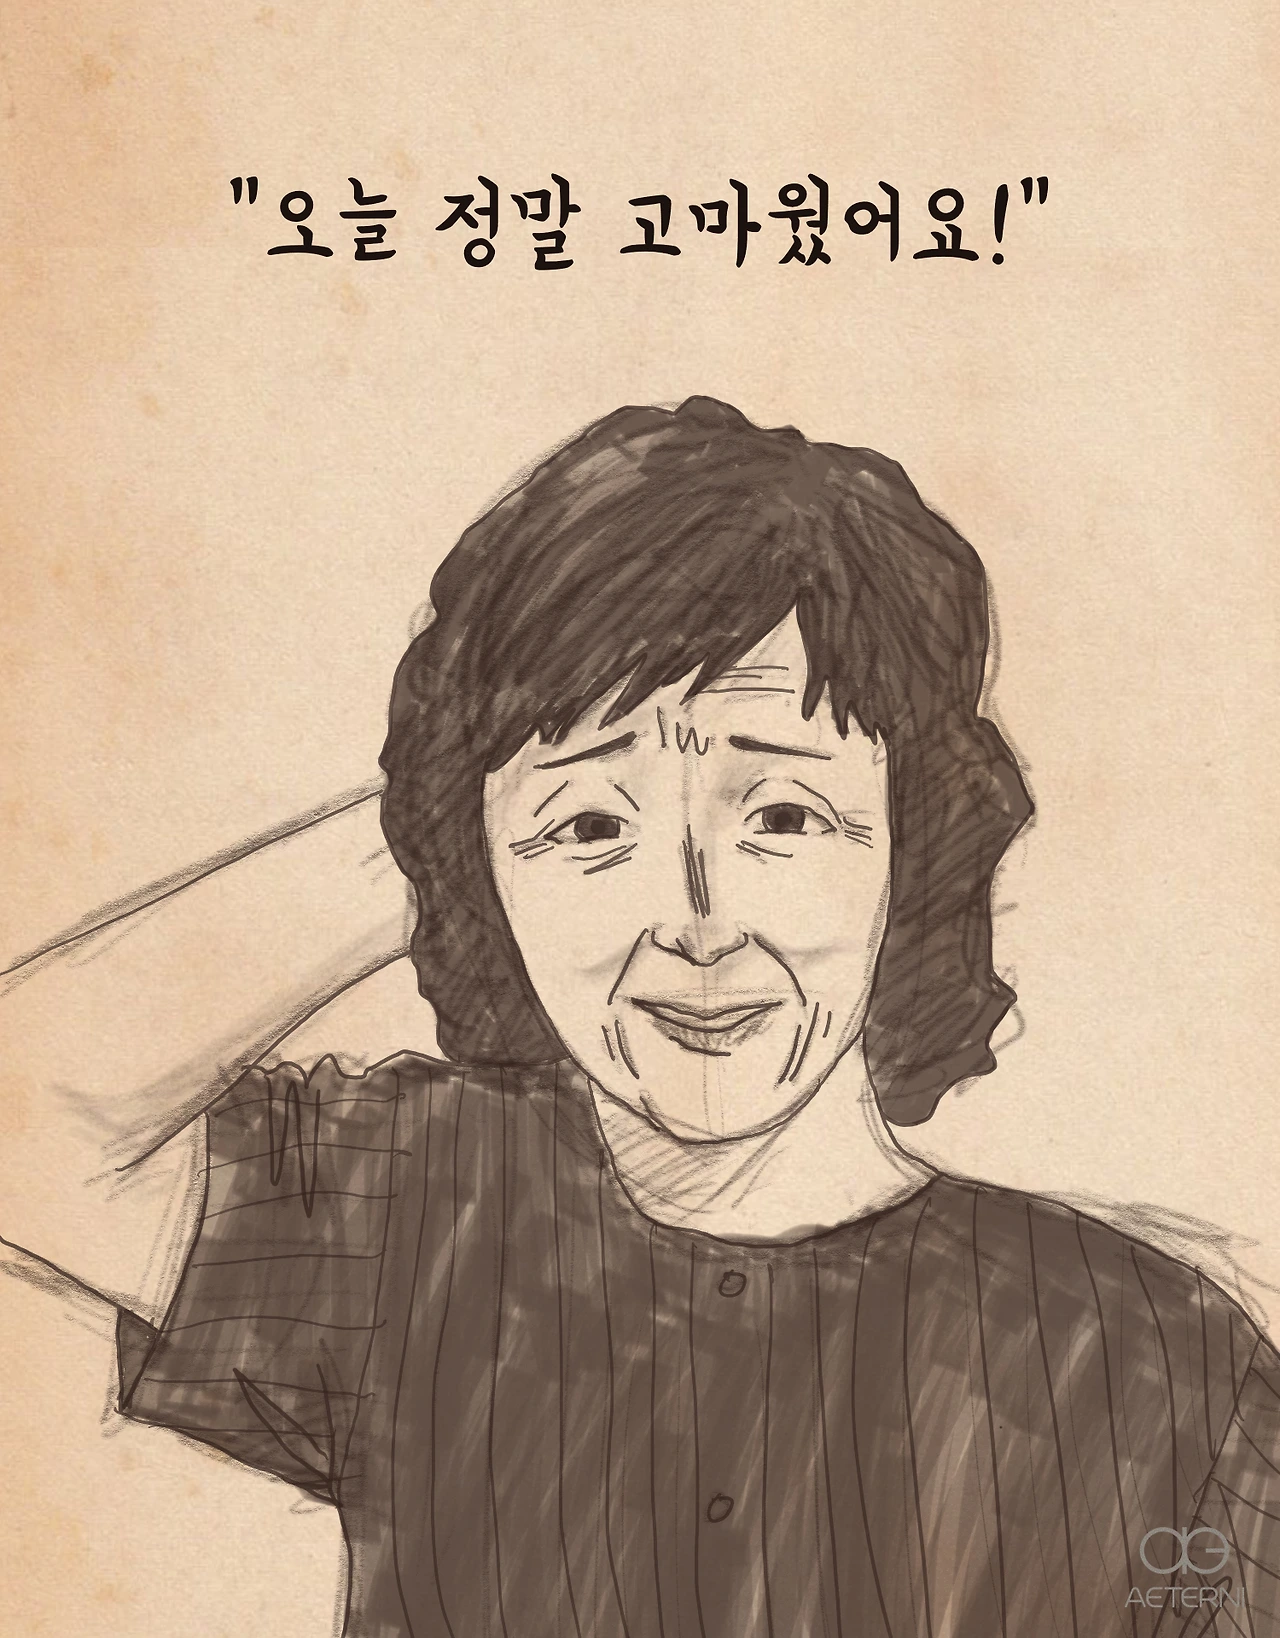 "오늘 정말 고마웠어요!"
AETERNI